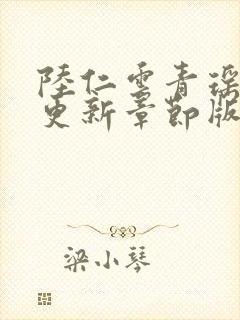 陸仁雲青瑤
更新章節版
梁小琴